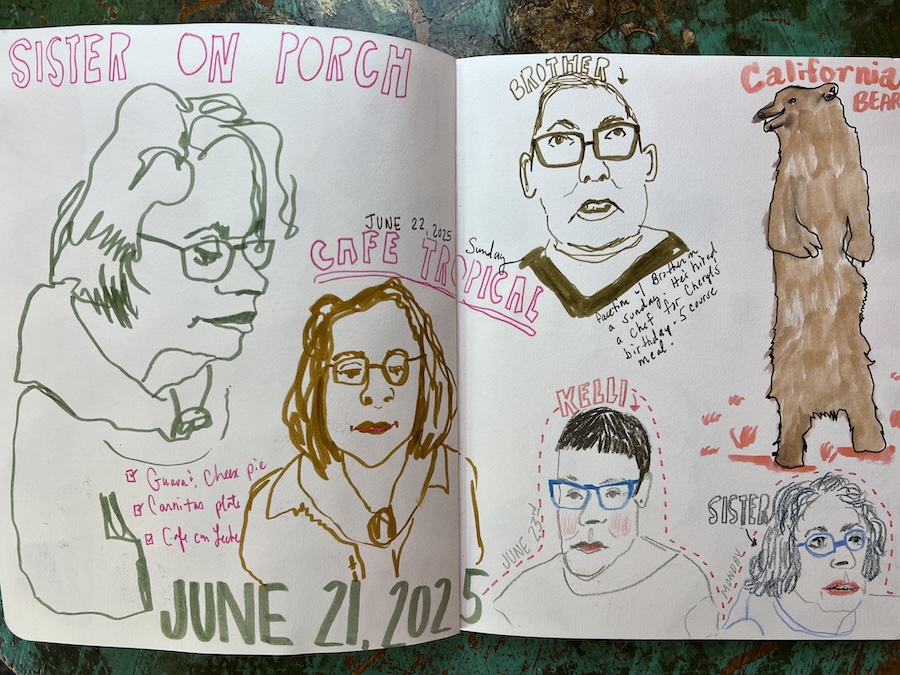 SISTER ON PORCH
JUNE 22, 2025
CAFE TROPICAL
Guava & Cheese pie
Carnitas plate
Cafe con Leche
JUNE 21, 2025
BROTHER
Sunday
facetime w/ Brother on
a sunday. He hired
a chef for Cheryl's
birthday - 5 course
meal.
California
BEAR
KELLI
JUNE 23rd
SISTER
MONDAY